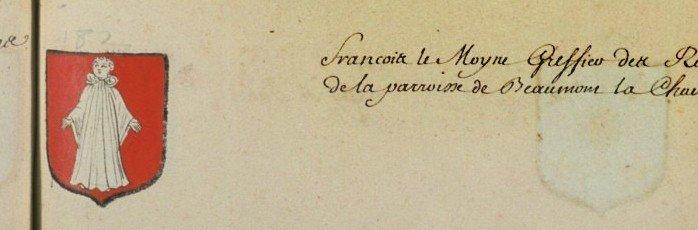 Francois le Moyne Greffier des Re
de la parroisse de Beaumont la Chau